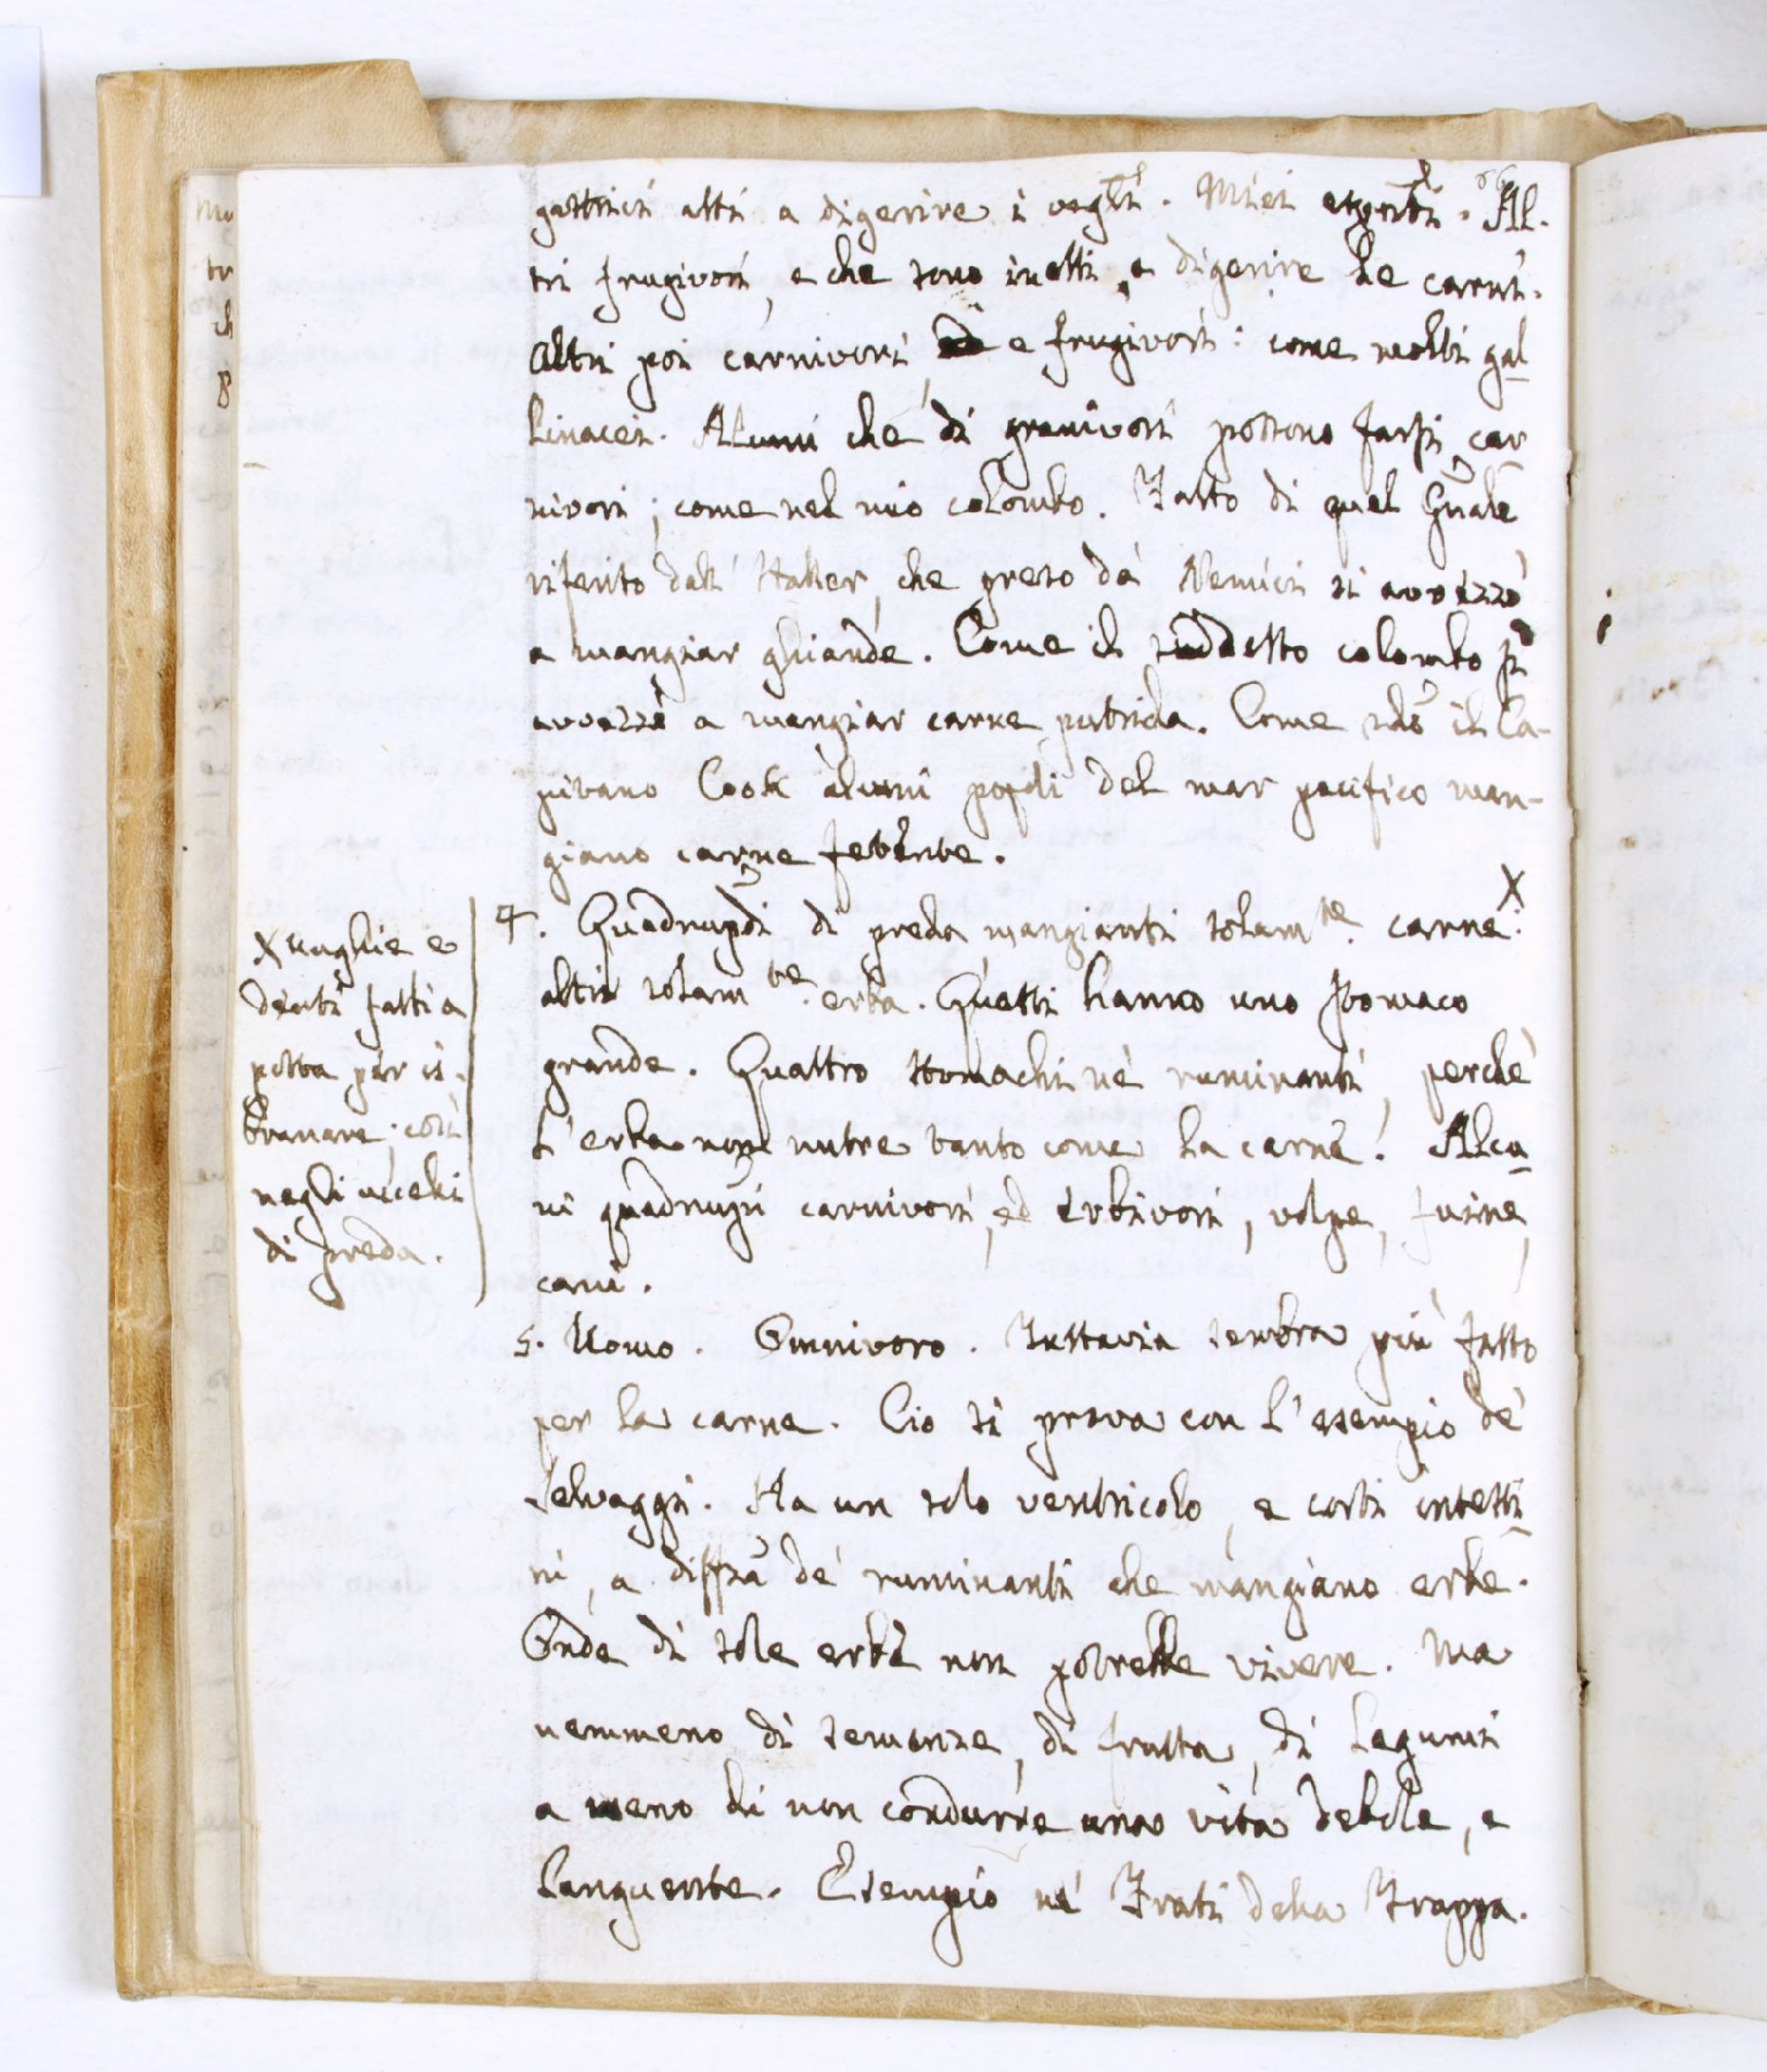 gastrici atti a digerire i vegli. Miei esperti. Al-
tri frugivori, e che sono inetti a digerire le carni.
Altri poi carnivori e frugivori: come molti gal
linacei. Alcuni che di granivori possono farsi car
nivori; come nel mio colombo. Fatto di quel Gnale
riferito dall' Haller, che preso da' Nemici si avvezzò
a mangiar ghiande. Come il suddetto colombo si
avvezzò a mangiar carne putrida. Come sedo il Ca-
pitano Cook alcuni popoli del mar pacifico man-
giano carne fetente.
4. Quadrupdi di preda mangianti solam.te carne: X
altri solam.te erba. Questi hanno uno stomaco
grande. Quattro stomachi ne' ruminanti, perchè
l'erba non nutre tanto come la carne. Alcu
ni quadrupi carnivori, ed erbivori, volpe, fuine,
cani.
X unghie e
denti fatti a
posta per is-
branare; così
negli uccelli
di preda.
5. Uomo. Omnivoro. Tuttavia sembra più fatto
per la carne. Cio si prova con l'esempio de'
selvaggi. Ha un solo ventricolo, e corti intesti
ni, a diffza de' ruminanti che mangiano erbe.
Onde di sole erbe non potrebbe vivere. Ma
nemmeno di semenze, di frutta, di legumi
a meno di non condurre una vita debole, e
languente. Esempio ne' Frati della Trappa.